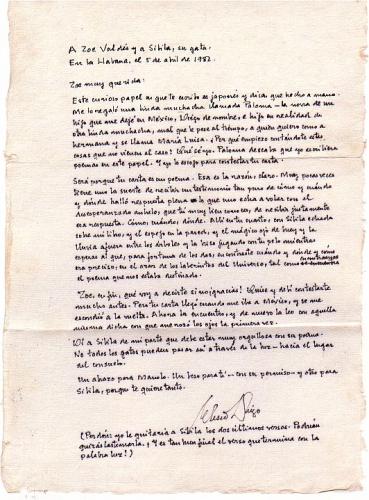 A Zoe Valdés y a Sibila, su gata.
En La Habana, el 5 de abril de 1982.
Zoe muy querida:
Este curioso papel al que te escribo es japonés y dice que hecho a mano.
Me lo regaló una linda muchacha llamada Paloma — la novia de un
hijo que me dejé en México, Diego de nombre, e hija en realidad de
otra linda muchacha, mal que le pese al tiempo, a quien quiero como a
hermana y se llama María Luisa. ¿Por qué empiezo contándote estas
cosas que no vienen al caso? Qué sé yo. Paloma deseaba que yo escribiera
poemas en este papel. Y yo lo escojo para contestar tu carta.
Será porque tu carta es un poema. Esa es la razón, claro. Muy pocas veces
tiene uno la suerte de recibir un testimonio tan puro de cómo y cuándo
y dónde halló respuesta plena lo que uno echa a volar con el
desesperanzado anhelo, que tú muy bien conoces, de recibir justamente
esa respuesta. Cómo, cuándo, dónde. Allí en tu cuarto, con Sibila echada
sobre mi libro, y el espejo en la pared, y el mágico ojo de buey y la
lluvia afuera entre los árboles y la brisa jugando con tu pelo mientras
esperas al que, para fortuna de los dos, encontraste cuándo y dónde y cómo
era preciso, en el azar de los laberintos del Universo, tal como encontrarías
el poema que nos estaba destinado.
Zoe, en fin, ¿qué voy a decirte si no gracias? Quise y debí contestarte
mucho antes. Pero tu carta llegó cuando me iba a México, y se me
escondió a la vuelta. Ahora la encuentro, y de nuevo la leo con aquella
misma dicha con que me rozó los ojos la primera vez.
Di a Sibila de mi parte que debe estar muy orgullosa con su poema.
No todos los gatos pueden pasar así a través de la luz — hacia el lugar
del consuelo.
Un abrazo para Manolo. Un beso para ti — con su permiso — y otro para
Sibila, porque te quiere tanto.
Eliseo Diego
(Perdón: yo le quitaría a Sibila los dos últimos versos. Podrían
quizás lastimarla. ¡Y es tan buen final el verso que termina con la
palabra luz!)